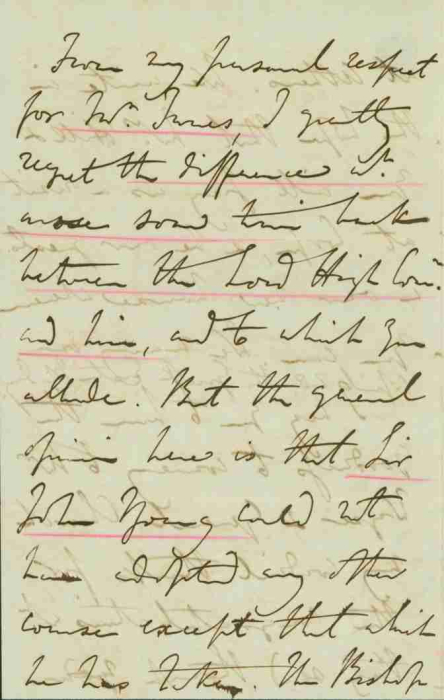 From my personal respect
for Mr. Innes, I greatly
regret the difference wh.
arose some time back
between the Lord High Comr.
and him, and to which you
allude. But the general
opinion here is that Sir
John Young could not
have adopted any other
course except that which
he has taken. The Bishop